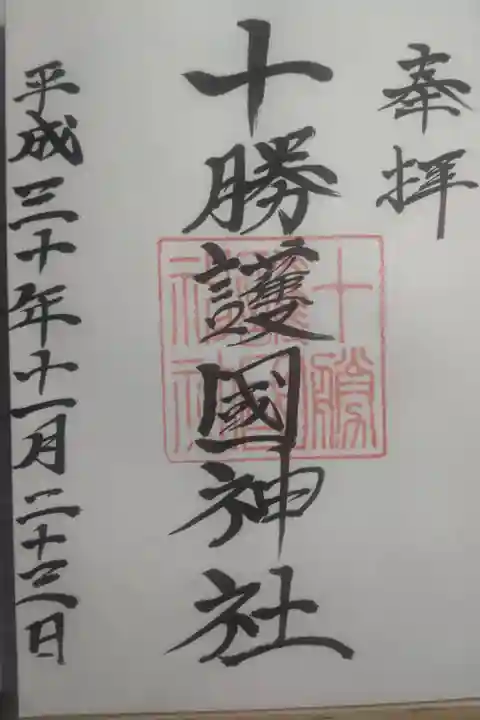 奉拝
十勝護國神社
十勝護國神社
平成三十年十一月二十三日